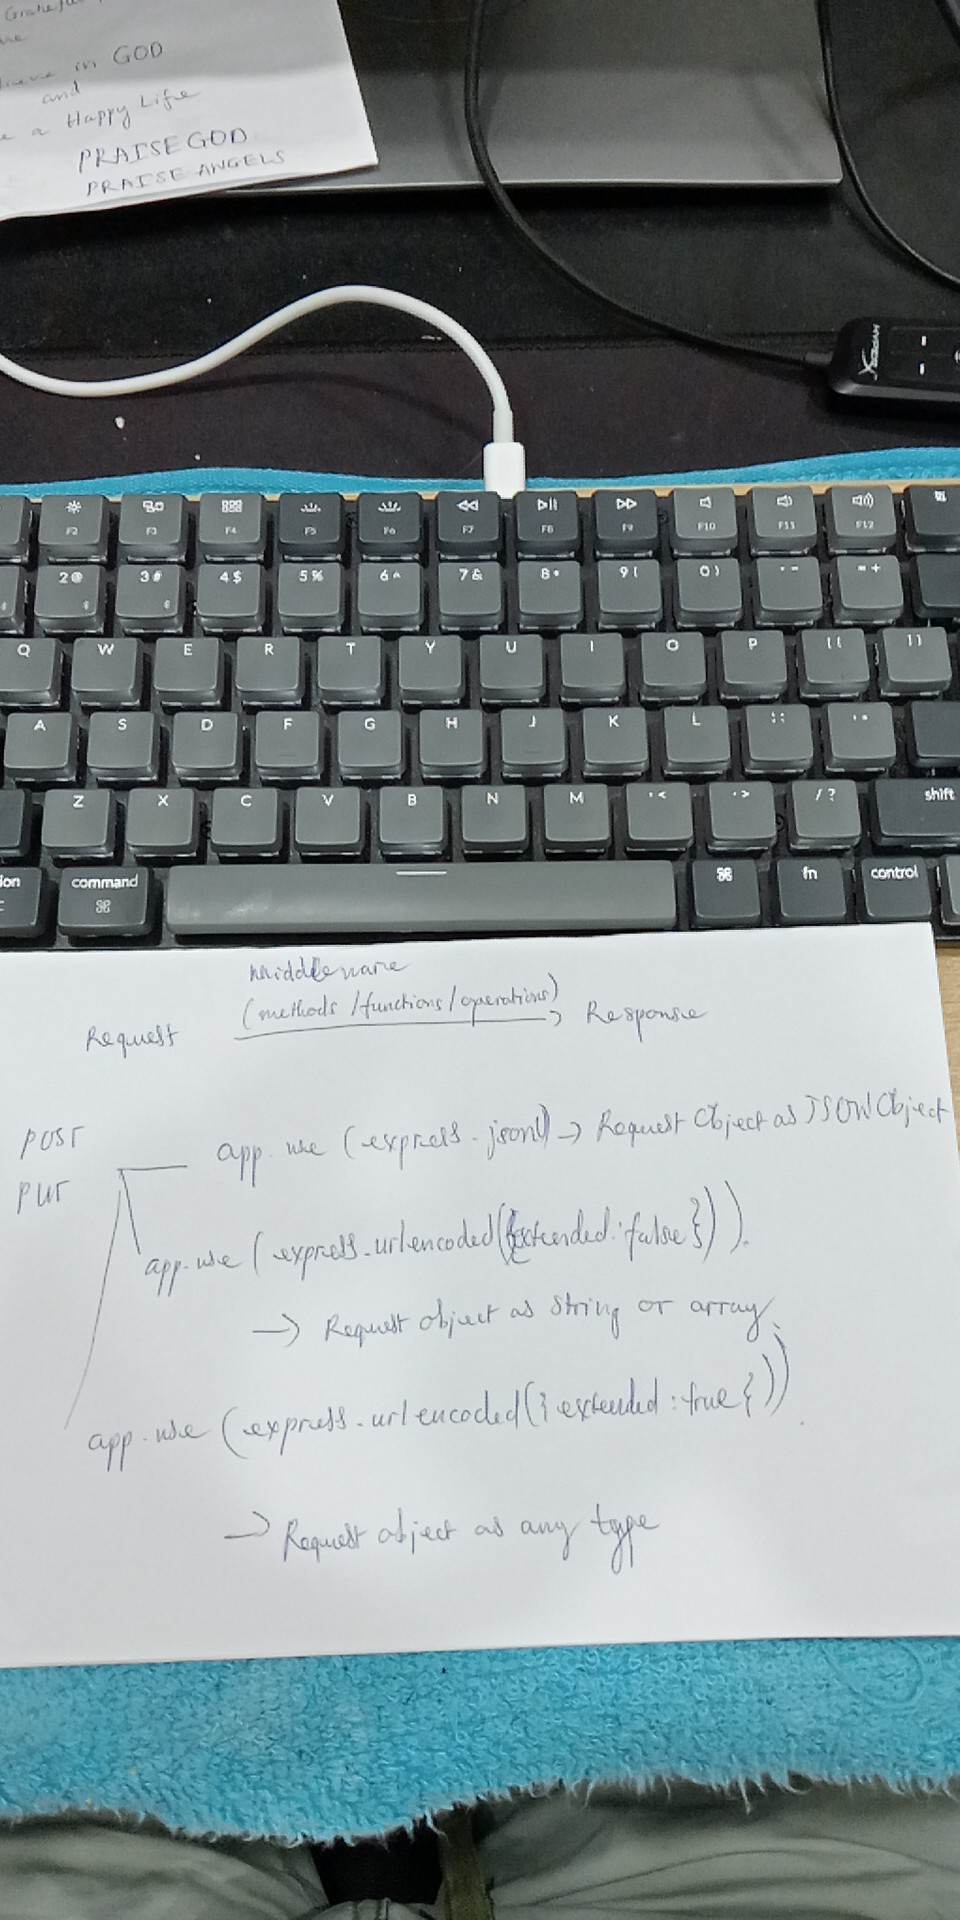 Grateful
in GOD
and
a Happy Life
PRAISE GOD
PRAISE ANGELS
HYPERX
F2 F3 F4 F5 F6 F7 F8 F9 F10 F11 F12
2@ 3# 4$ 5% 6^ 7& 8* 9( 0) -_ =+
Q W E R T Y U I O P [{ ]}
A S D F G H J K L ;: '"
Z X C V B N M ,< .> /? shift
command ⌘ ⌘ fn control
Middleware
(methods/functions/operations)
Request → Response
POST
app.use(express.json()) → Request Object as JSON Object
PUT
app.use(express.urlencoded({extended:false})).
→ Request object as string or array.
app.use(express.urlencoded({extended:true})).
→ Request object as any type